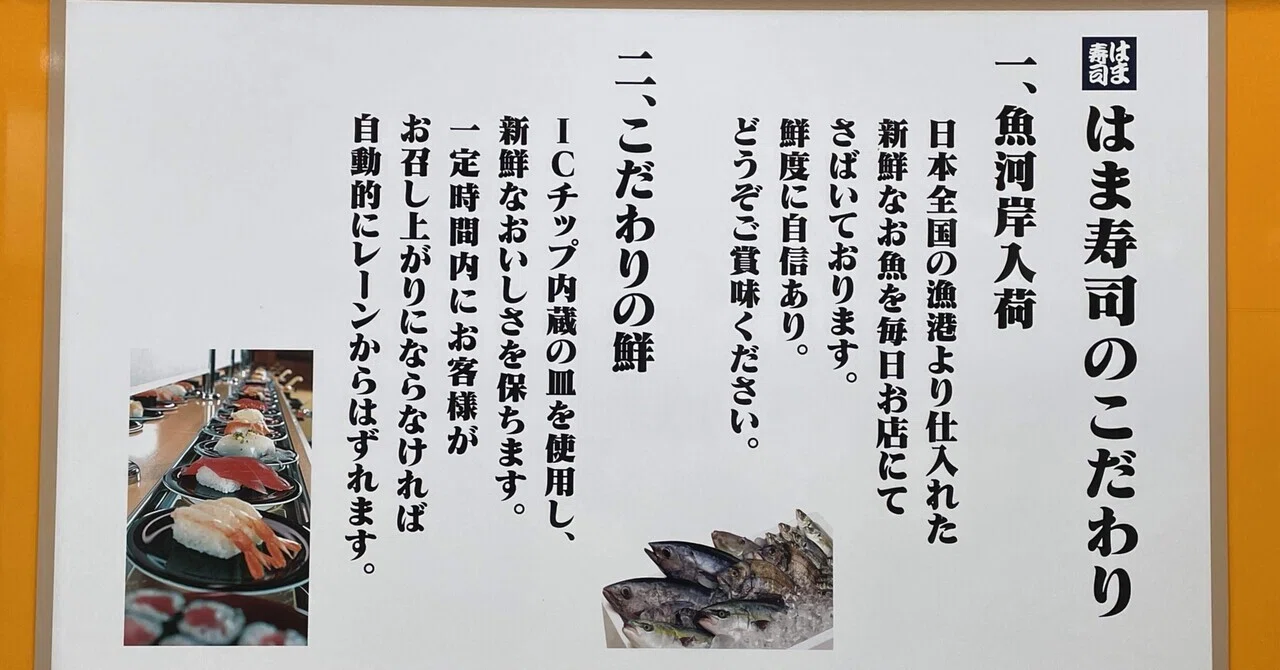 はま
寿司
はま寿司のこだわり
一、魚河岸入荷
日本全国の漁港より仕入れた
新鮮なお魚を毎日お店にて
さばいております。
鮮度に自信あり。
どうぞご賞味ください。
二、こだわりの鮮
ICチップ内蔵の皿を使用し、
新鮮なおいしさを保ちます。
一定時間内にお客様が
お召し上がりにならなければ
自動的にレーンからはずれます。